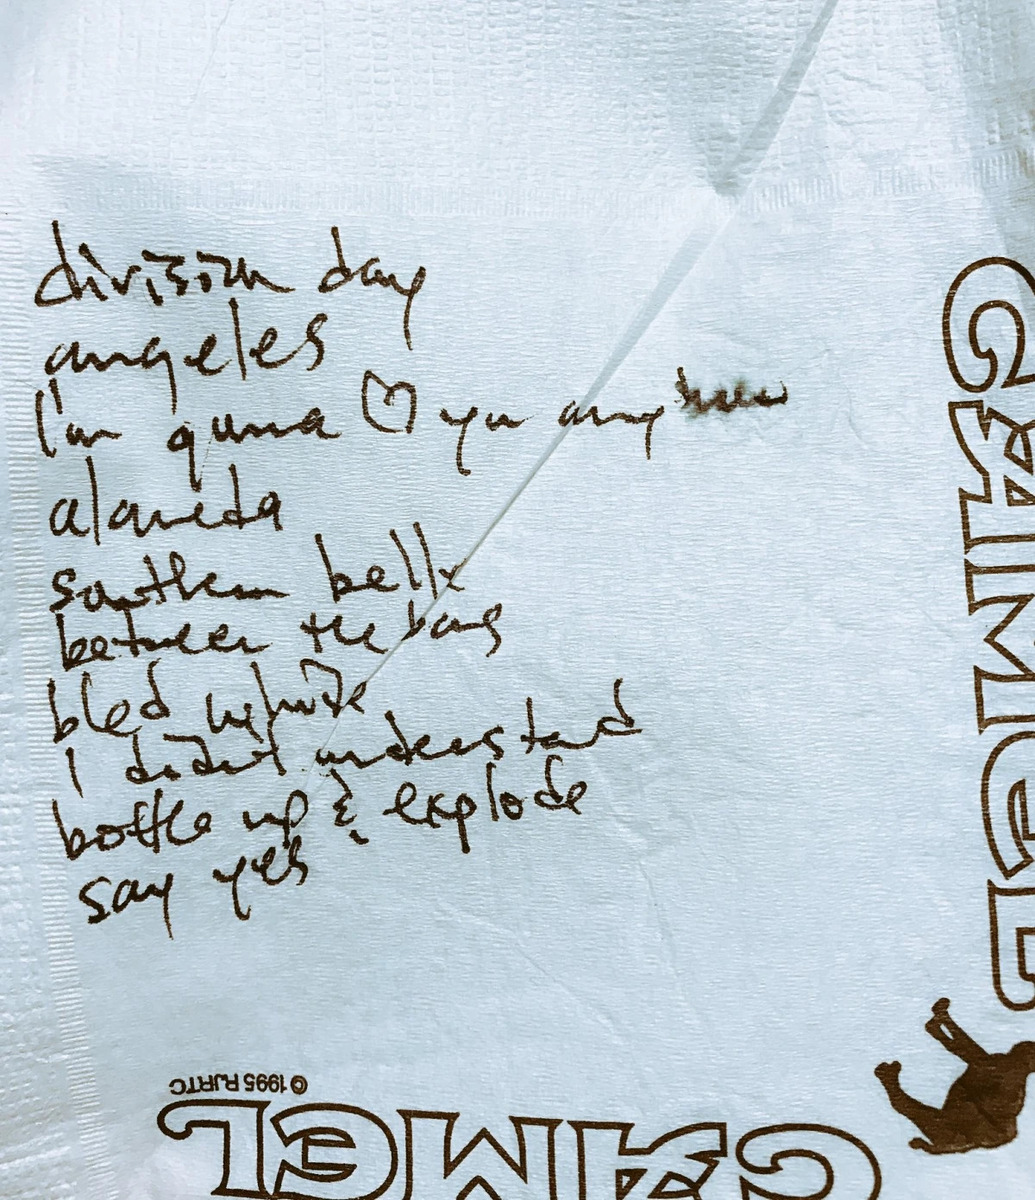 division day
angeles
I'm gunna ♡ you anyhow
alameda
southern belle
between the bars
bled white
I didn't understand
bottle up & explode
say yes
CAMEL
© 1995 RJRTC
CAMEL